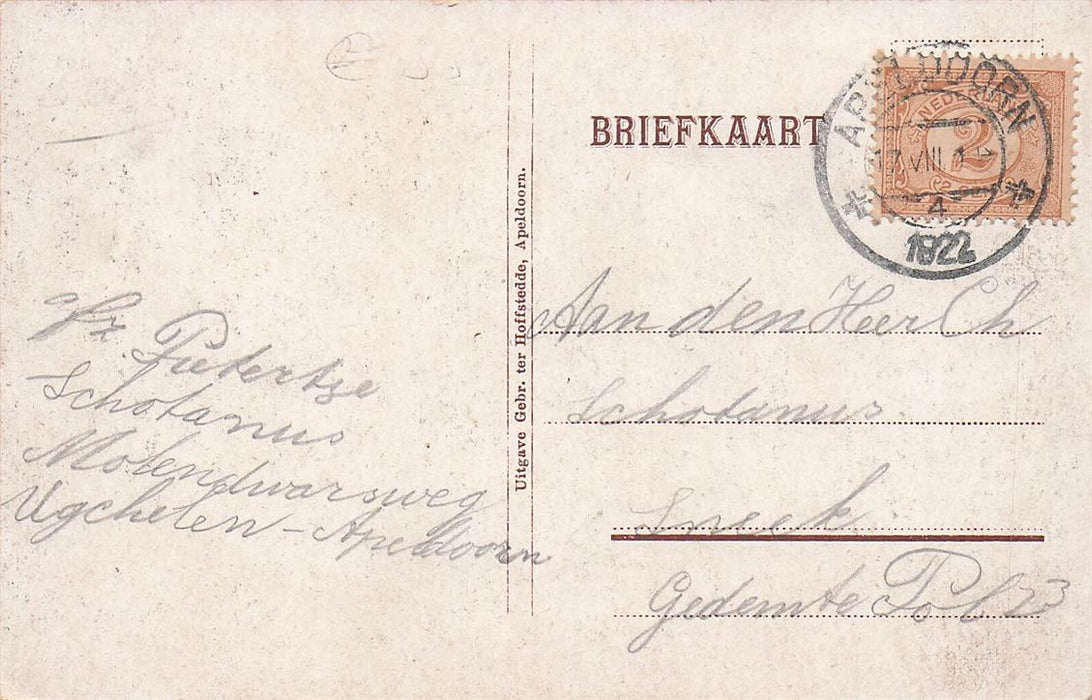 BRIEFKAART
APELDOORN
NEDE
2
17 VIII
4
1922
Uitgave Gebr. ter Hoffstedde, Apeldoorn.
afz. Pietertje
Schotanus
Molendwarsweg
Ugchelen - Apeldoorn
Aan den Heer Ch
Schotanus.
Sneek
Gedemte Pol 23